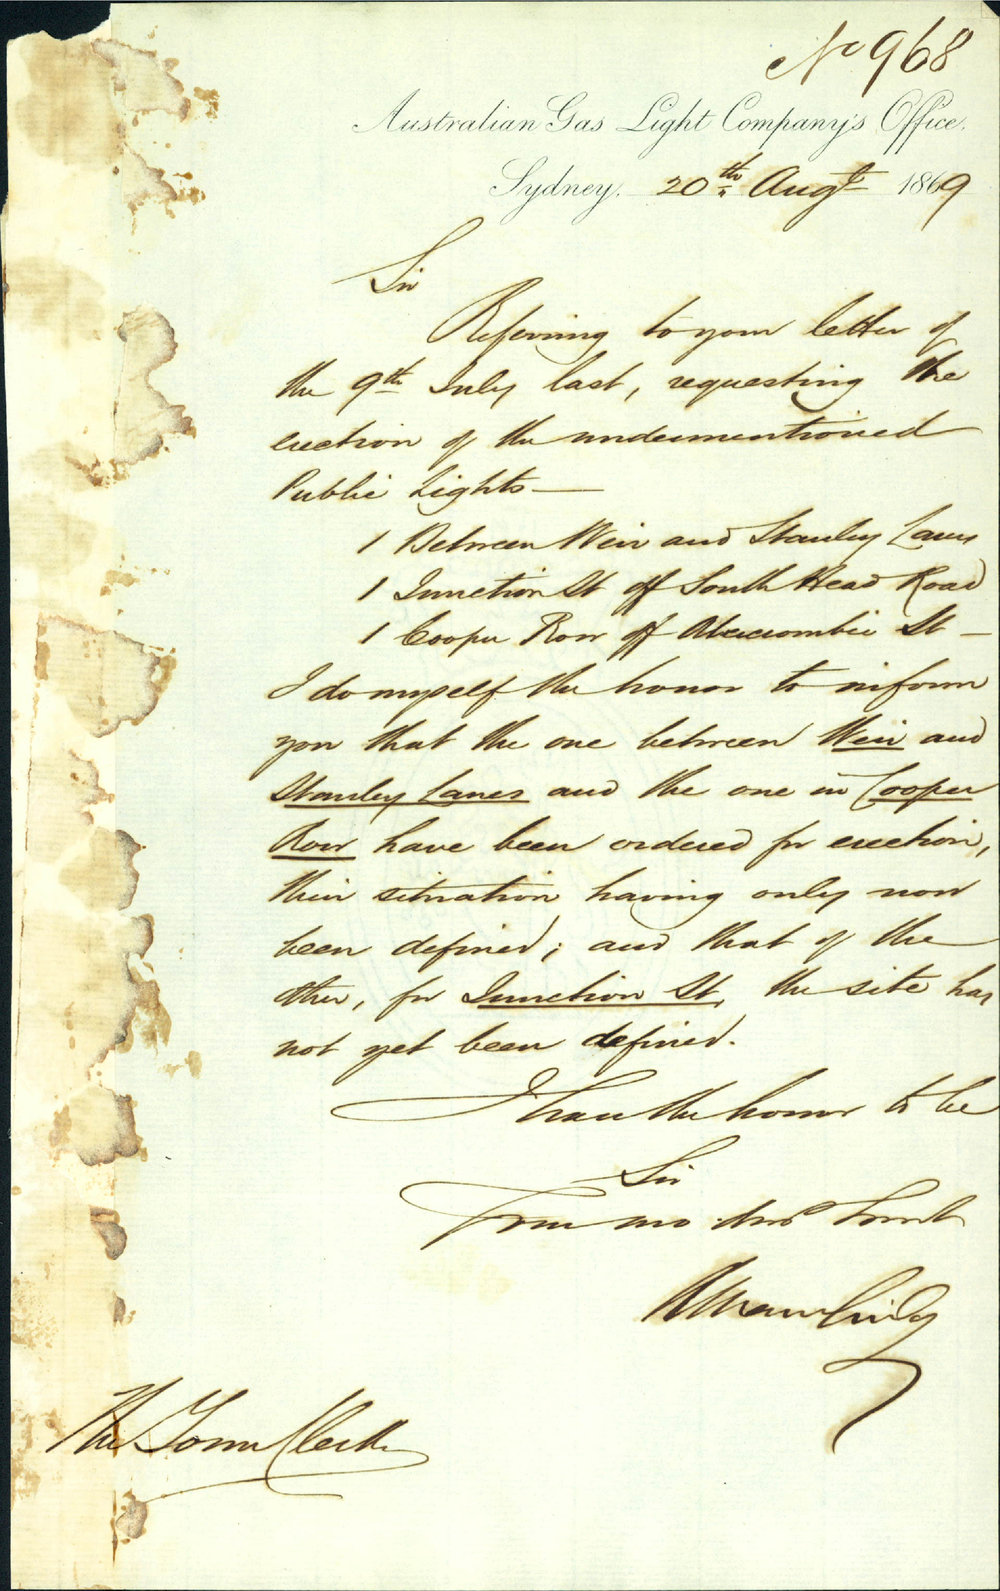 No 968
Australian Gas Light Company's Office.
Sydney. 20th Augt 1869
Sir
Referring to your letter of
the 9th July last, requesting the
erection of the undermentioned
Public Lights—
1 Between Weir and Stanley Lanes
1 Junction St off South Head Road
1 Cooper Row off Abercrombie St —
I do myself the honor to inform
you that the one between Weir and
Stanley Lanes and the one in Cooper
Row have been ordered for erection,
their situation having only now
been defined; and that of the
other, for Junction St, the site has
not yet been defined.
I have the honor to be
Sir
Your mo. obed Servt
The Town Clerk